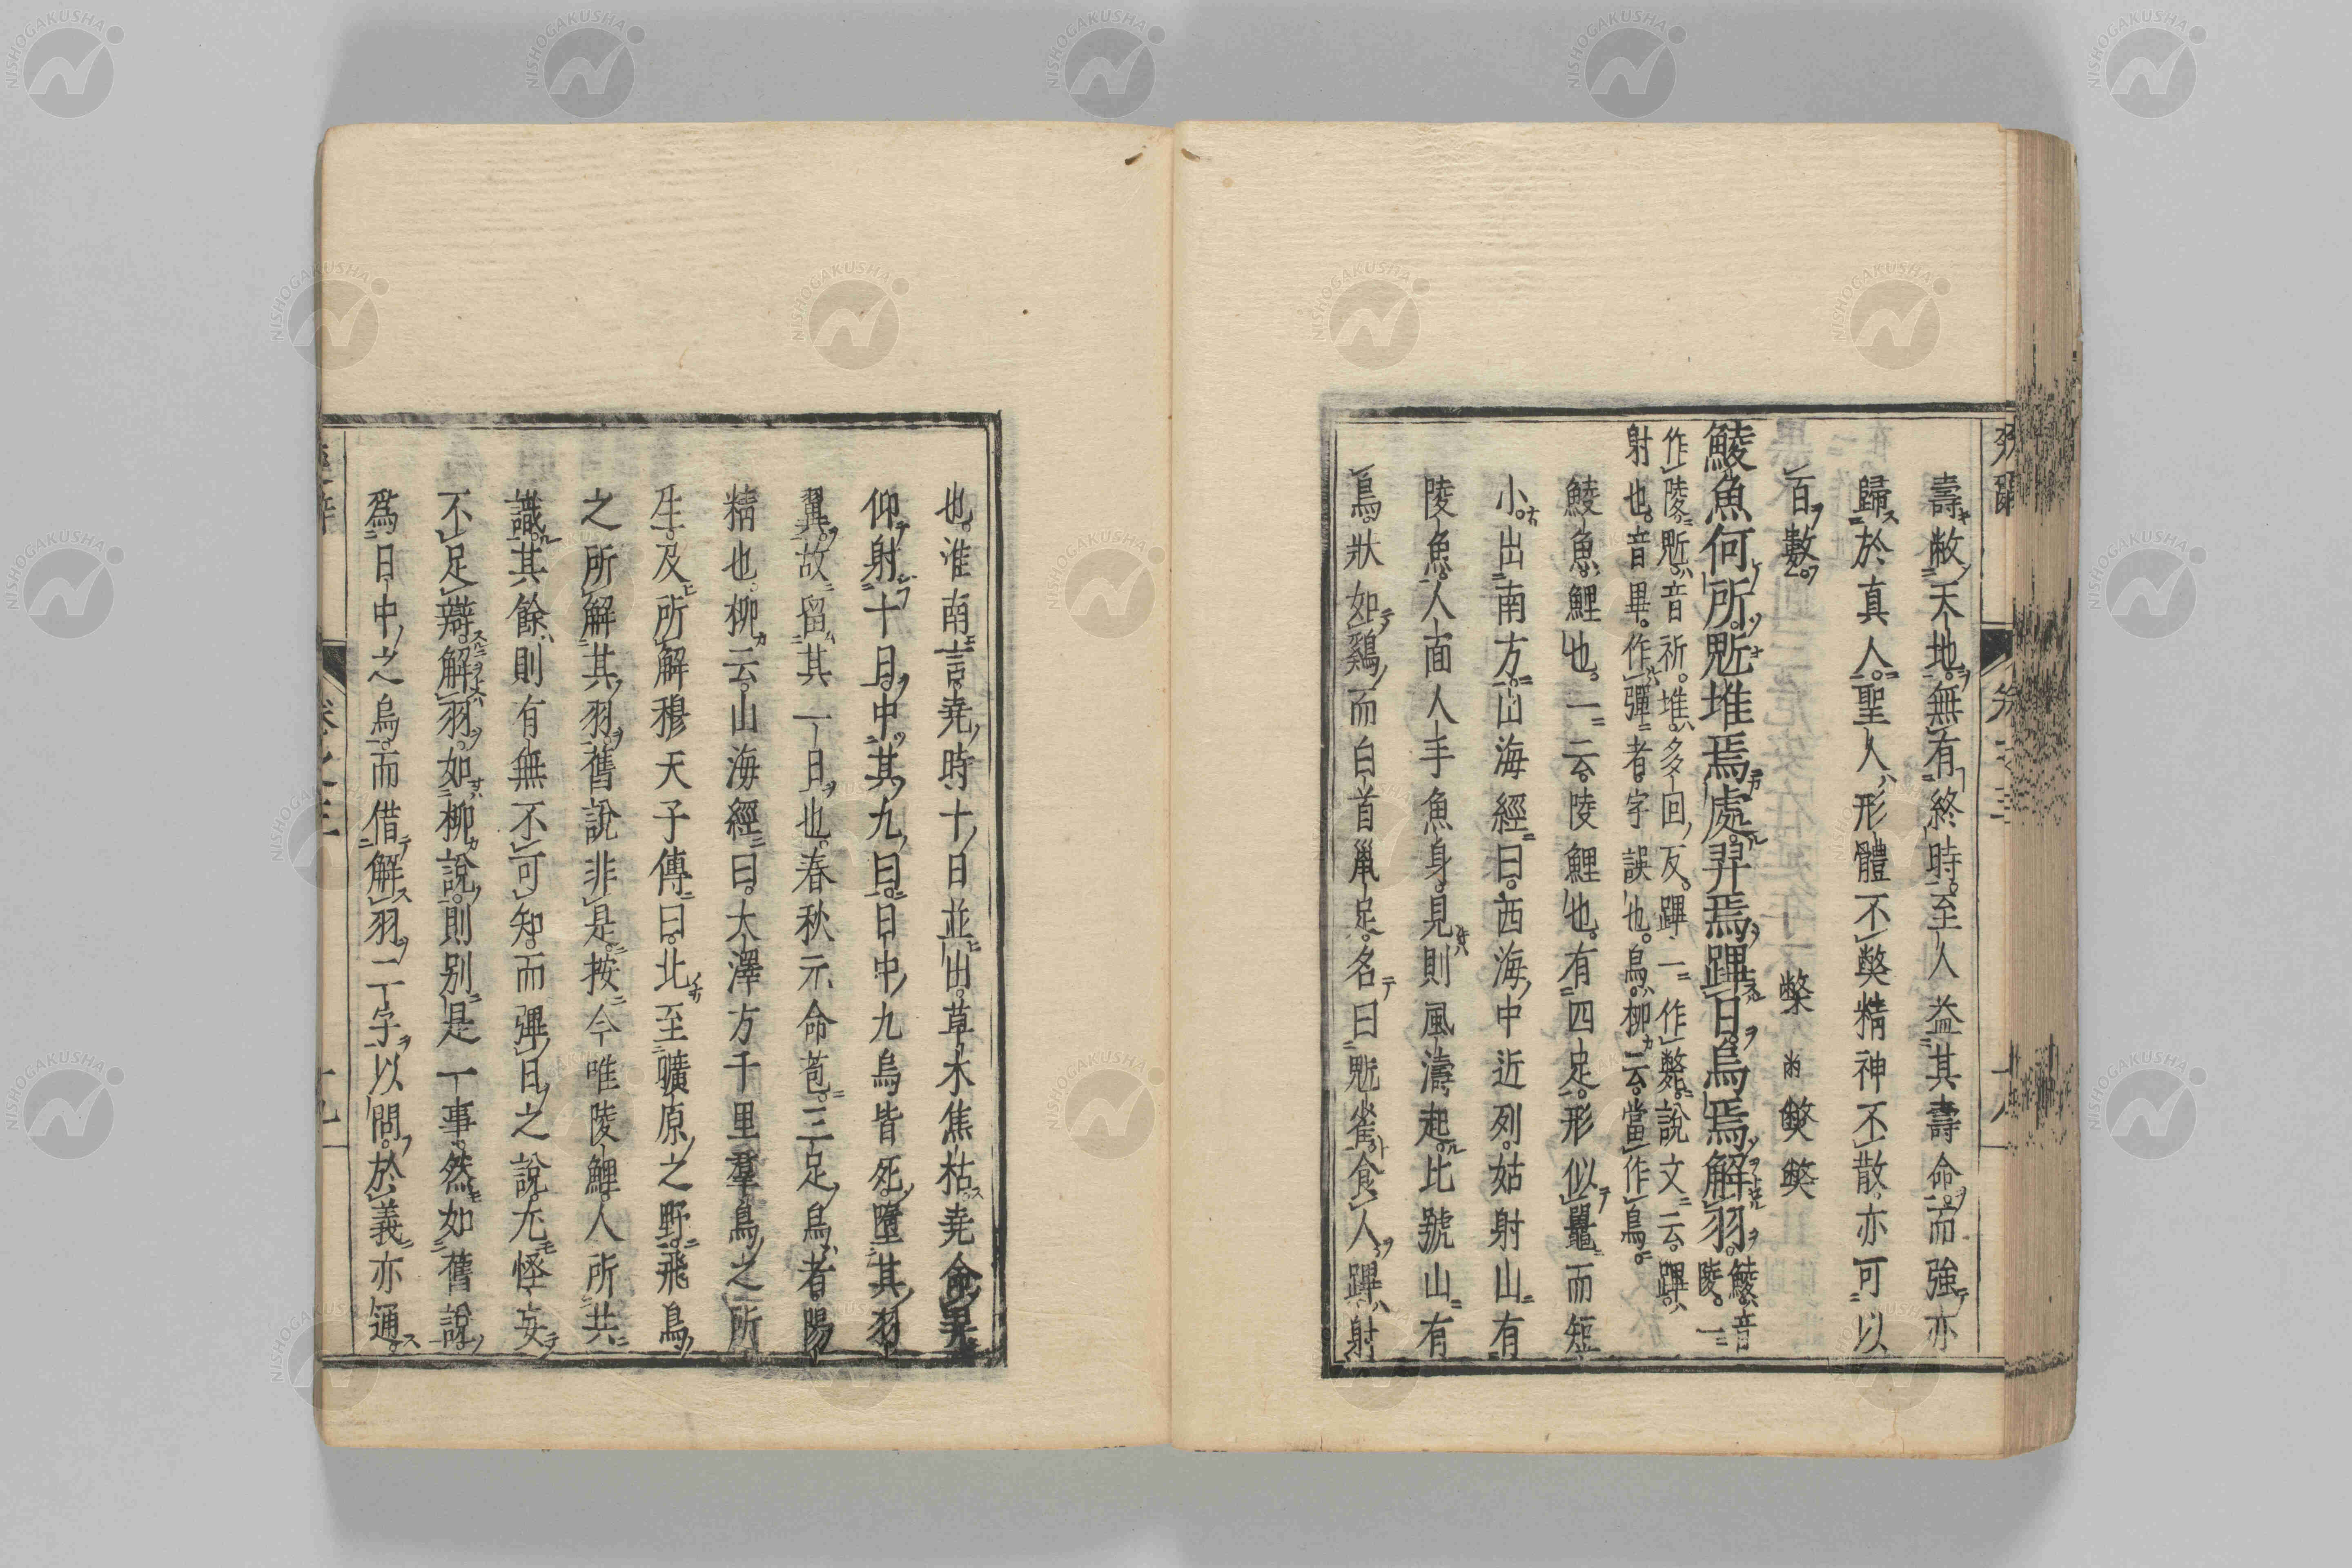 壽敝天地無有終時至人益其壽命而強亦
歸於真人聖人形體不獘精神不散亦可以
百數
鯪魚何所䰇堆焉處羿焉彃日烏焉解羽鯪音
陵一
作陵䰇音祈堆多回反彃一作斃說文云彃
射也音畢作彈者字誤也烏柳云當作鳥
鯪魚鯉也一云陵鯉也有四足形似鼉而短
小出南方山海經曰西海中近列姑射山有
陵魚人面人手魚身見則風濤起北號山有
鳥狀如鷄而白首鼠足名曰䰇雀食人彃射
也淮南言堯時十日並出草木焦枯堯命羿
仰射十日中其九日日中九烏皆死墮其羽
翼故留其一日也春秋元命苞三足烏者陽
精也柳云山海經曰大澤方千里羣鳥之所
生及所解穆天子傳曰北至曠原之野飛鳥
之所解其羽舊說非是按今唯陵鯉人所共
識其餘則有無不可知而彃日之說尤怪妄
不足辯解羽如柳說則别是一事然如舊說
爲日中之烏而借解羽二字以問於義亦通
NISHOGAKUSHA